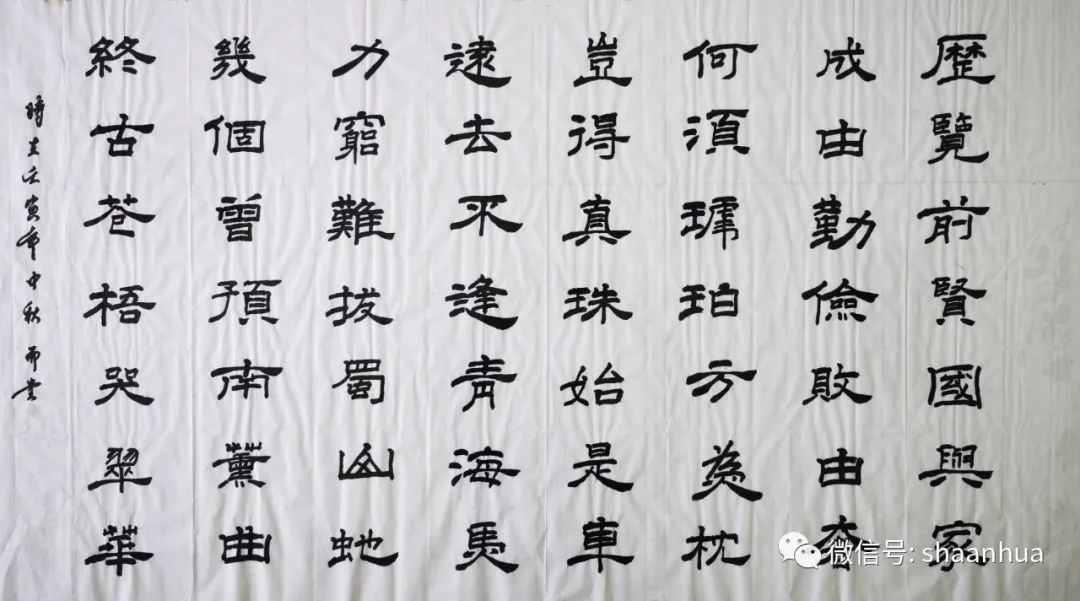 歷覽前賢國與家
成由勤儉敗由奢
何須琥珀方為枕
豈得真珠始是車
逮去不逢青海馬
力窮難拔蜀山虵
幾個曾預南薰曲
終古苍梧哭翠華
時在壬寅年中秋 書
微信号: shaanhua